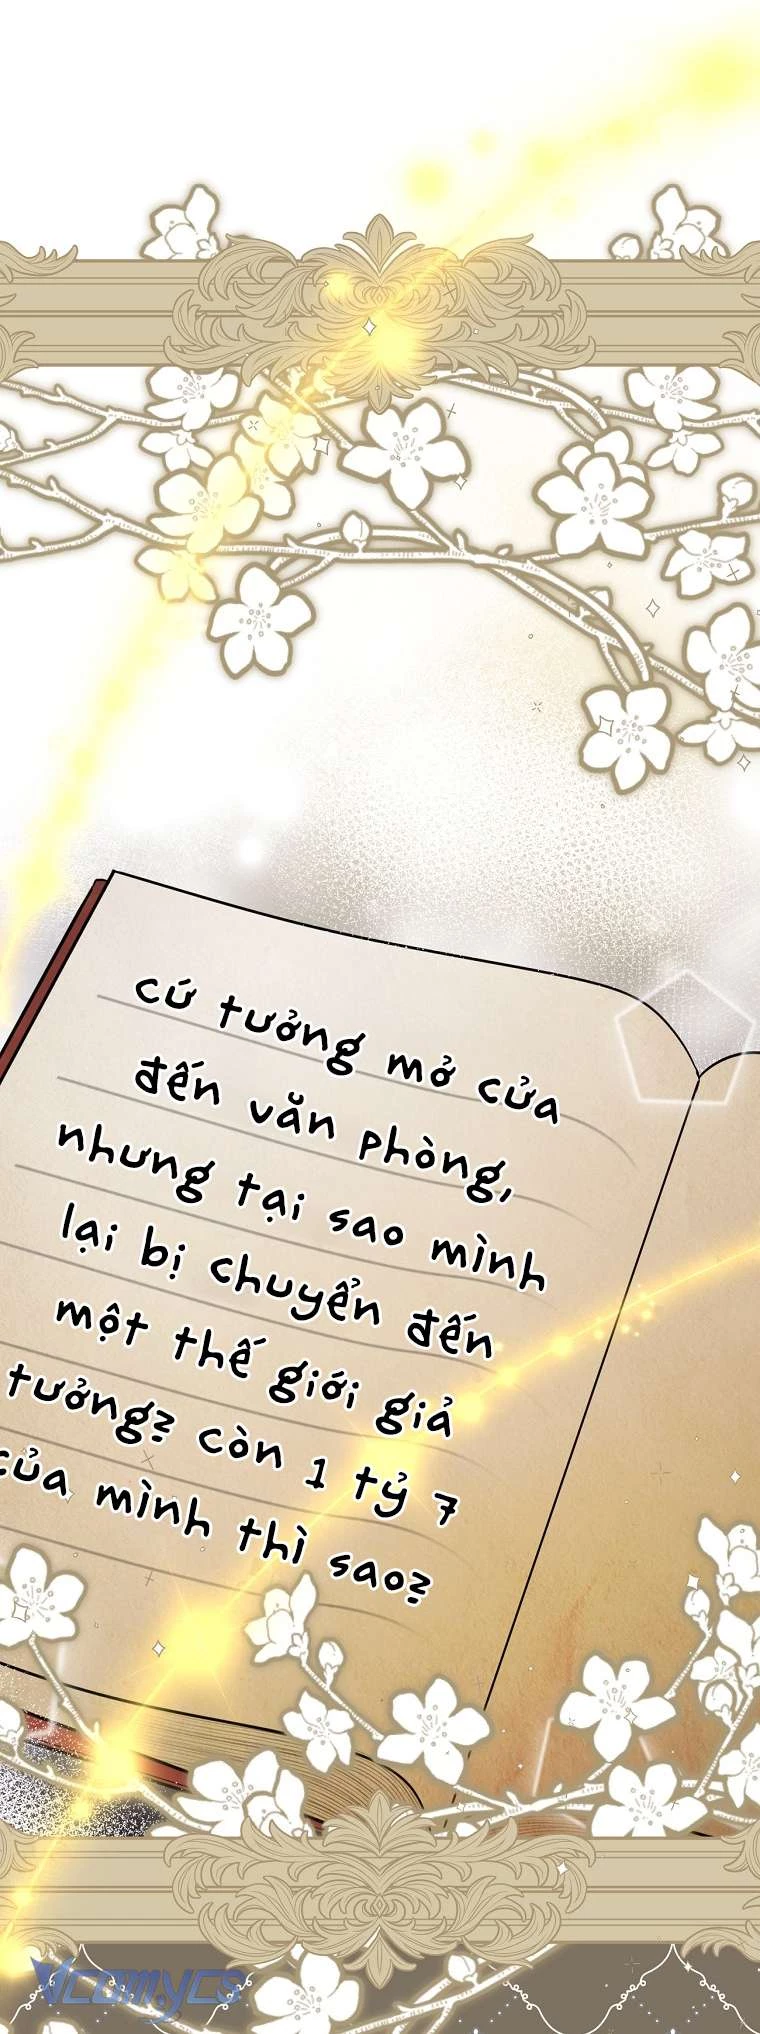 cứ tưởng mở cửa
đến văn phòng,
nhưng tại sao mình
lại bị chuyển đến
một thế giới giả
tưởng? còn 1 tỷ 7
của mình thì sao?
Vcomycs